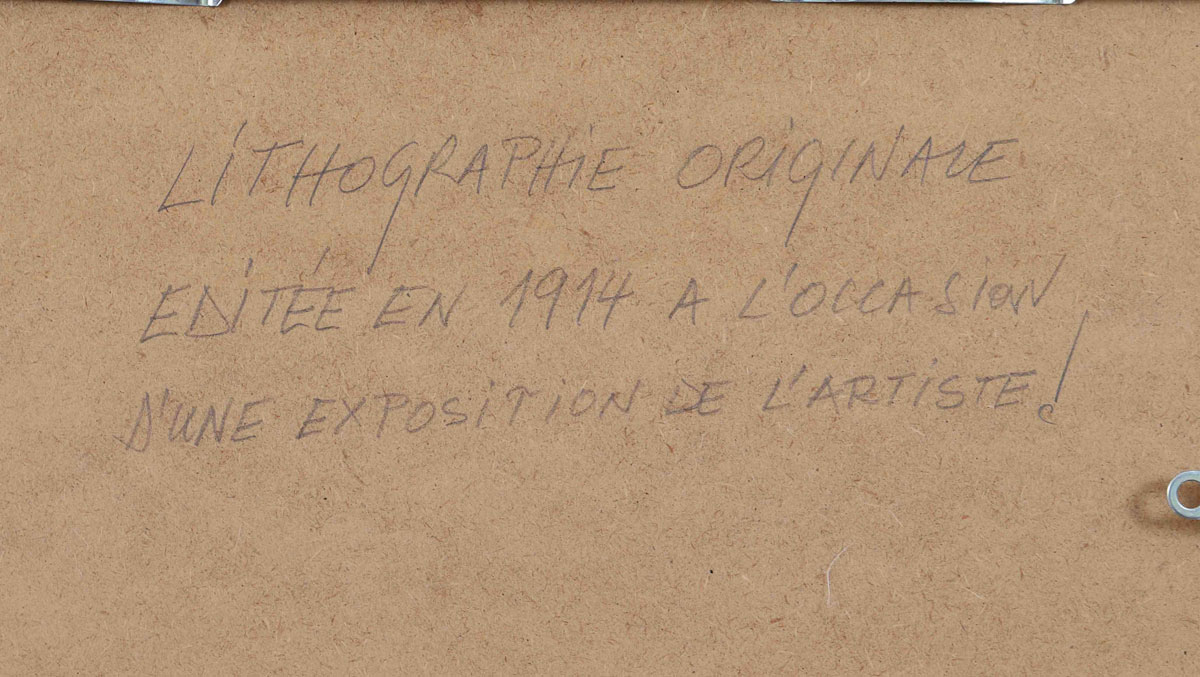 LITHOGRAPHIE ORIGINALE
EDITÉE EN 1914 A L'OCCASION
D'UNE EXPOSITION DE L'ARTISTE!